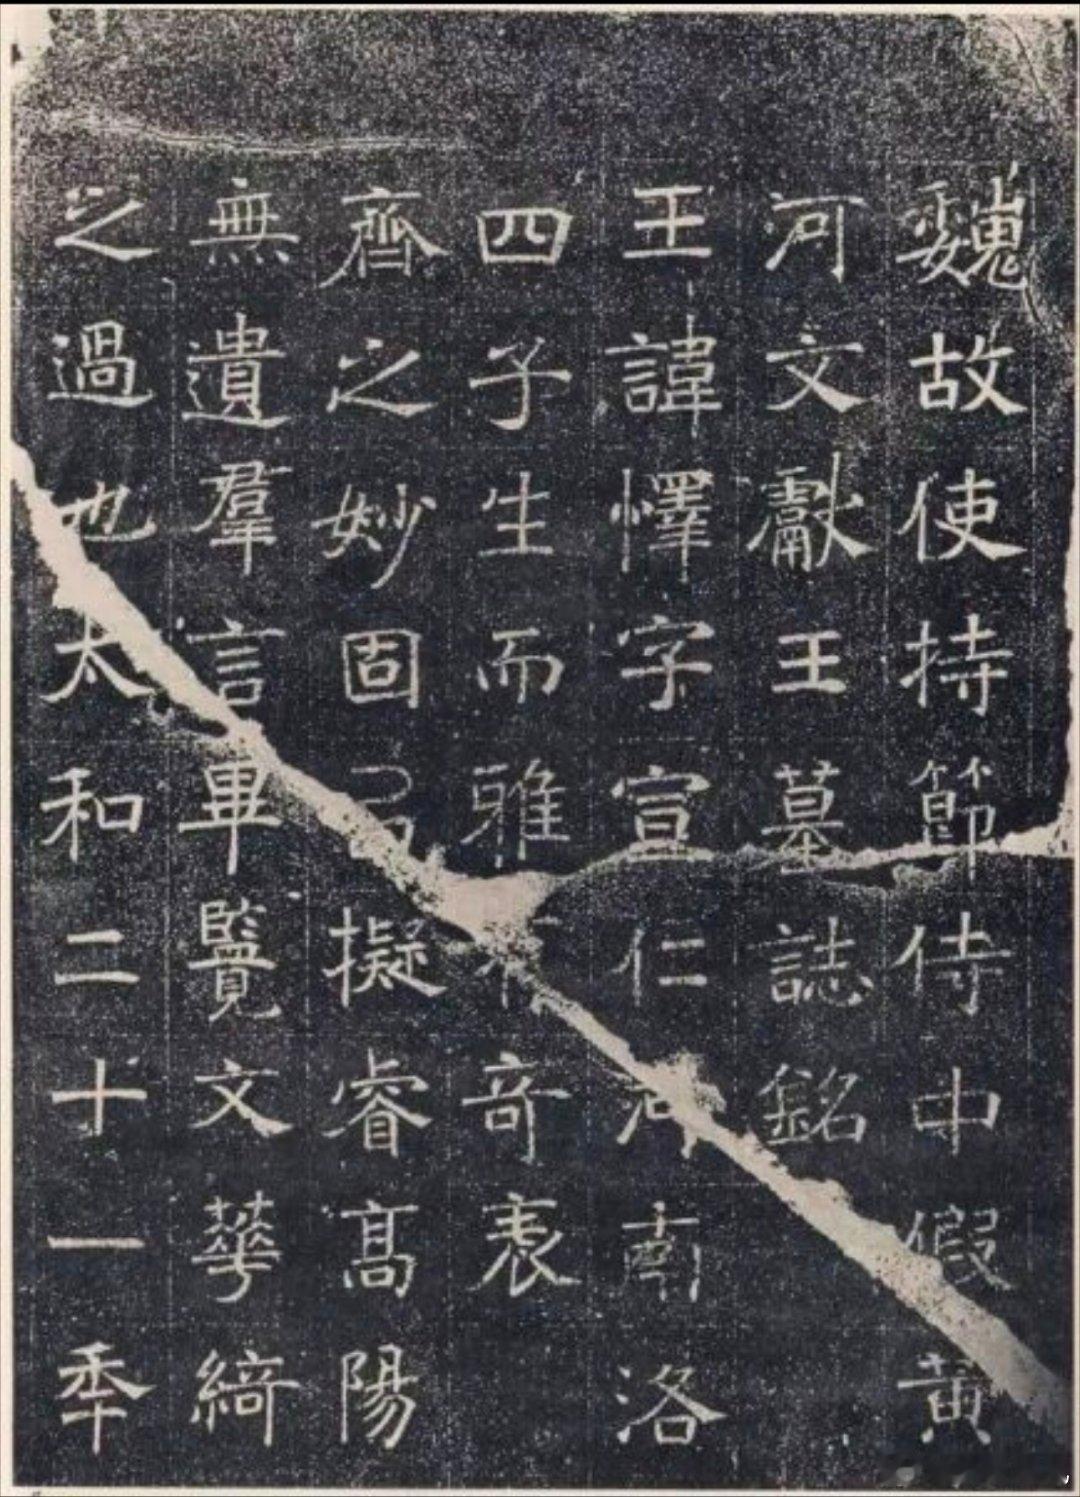 魏故使持節侍中假黄
河文獻王墓誌銘
王諱懌字宣仁河南洛
四子生而雅竒表
齊之妙固擬睿髙陽
無遺羣言畢覽文華綺
之過也太和二十一秊